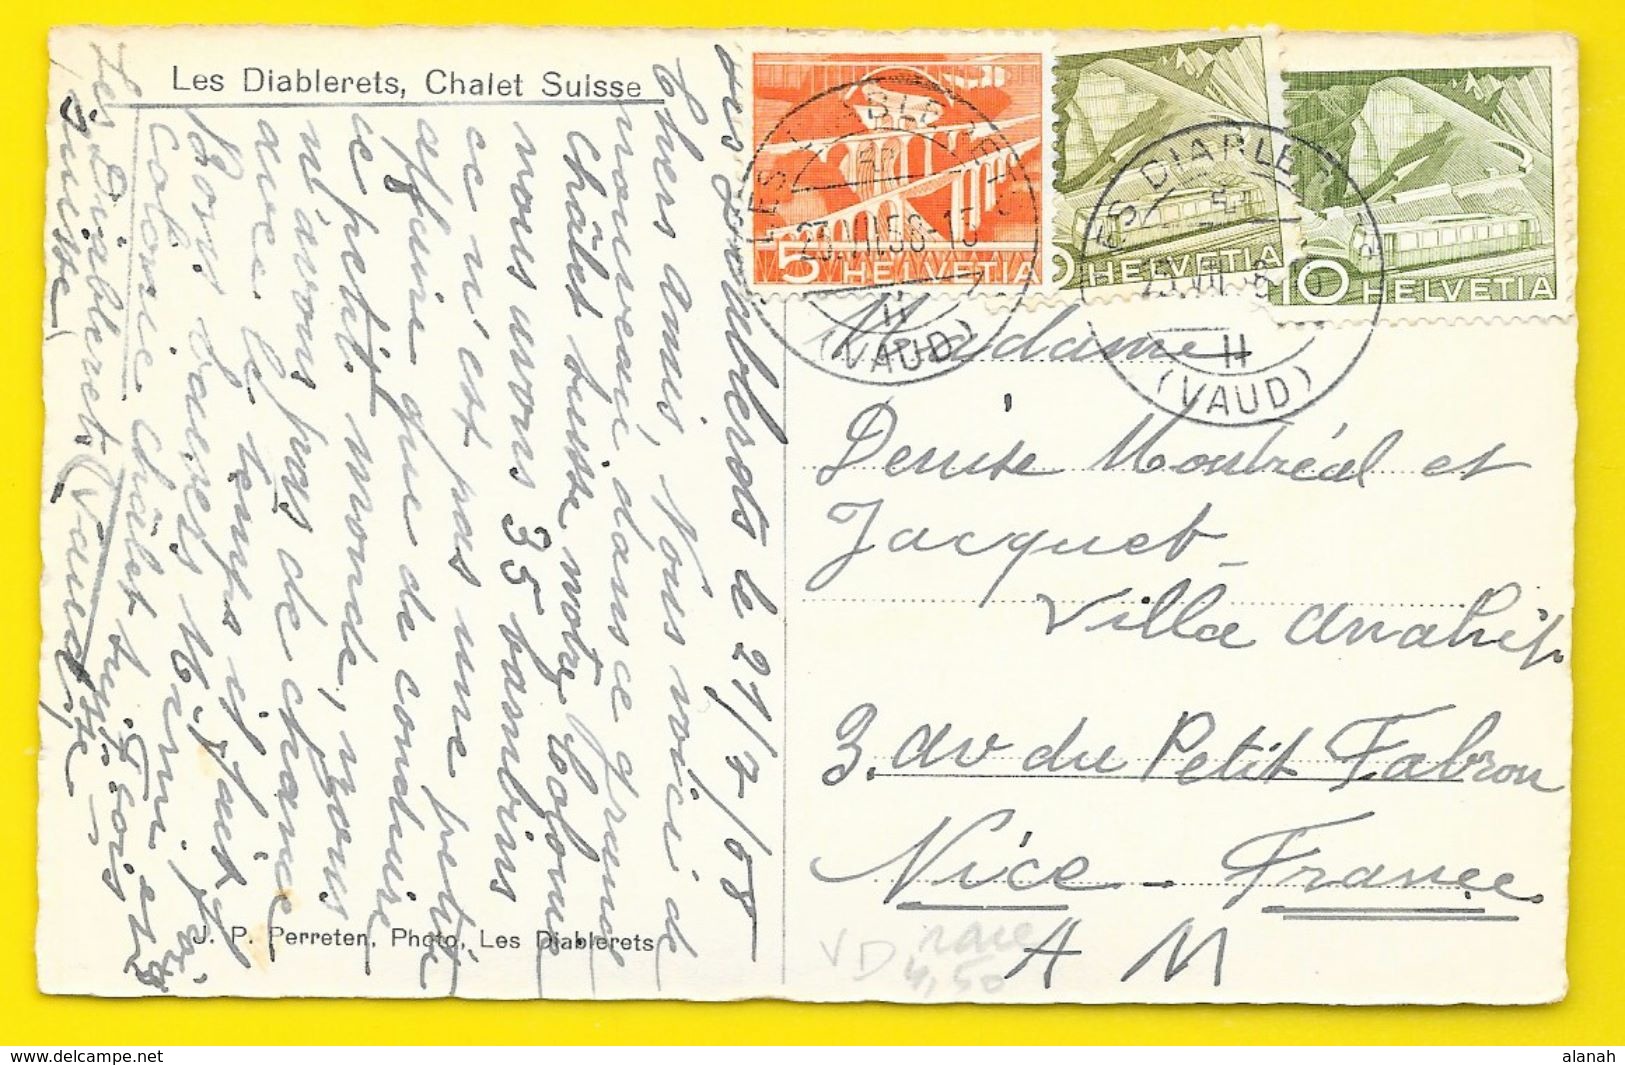 Les Diablerets, Chalet Suisse
Les Diablerets le 21/7/58
Chers amis, Nous voici de
nouveau dans ce grand
châlet suisse, notre Colonie
nous avons 35 bambins
ce n'est pas une petite
affaire que de conduire
ce petit monde, nous
n'avons pas de chance
avec le temps il fait
Bons baisers Mimi
Colonie Châlet suisse
Les Diablerets (Vaud)
Suisse
J. P. Perreten, Photo, Les Diablerets
5 HELVETIA
10 HELVETIA
10 HELVETIA
LES DIABLERETS
23.VII.58-13
II
(VAUD)
LES DIABLERETS
23.VII.58-13
II
(VAUD)
Madame
Denise Montréal et
Jacquet
Villa Anahit
3. av du Petit Fabron
Nice - France
A M
VD rare
4,50
delcampe.net
alanah